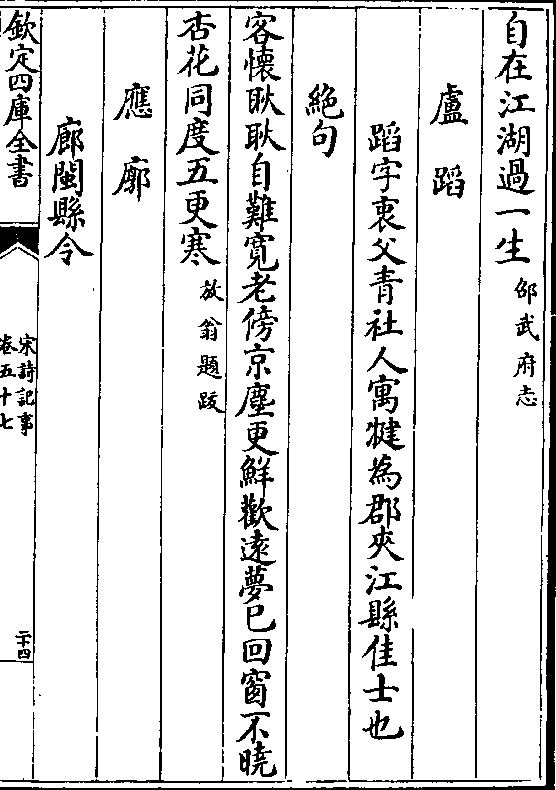 自在江湖過一生邵武府志
盧蹈
蹈字衷父青社人寓犍為郡夾江縣佳士也
絕句
客懷耿耿自難寬老傍京塵更鮮歡遠夢已回窗不曉
杏花同度五更寒放翁題跋
應廓
廓閩縣令
欽定四庫全書
宋詩記事
卷五十七
二十四